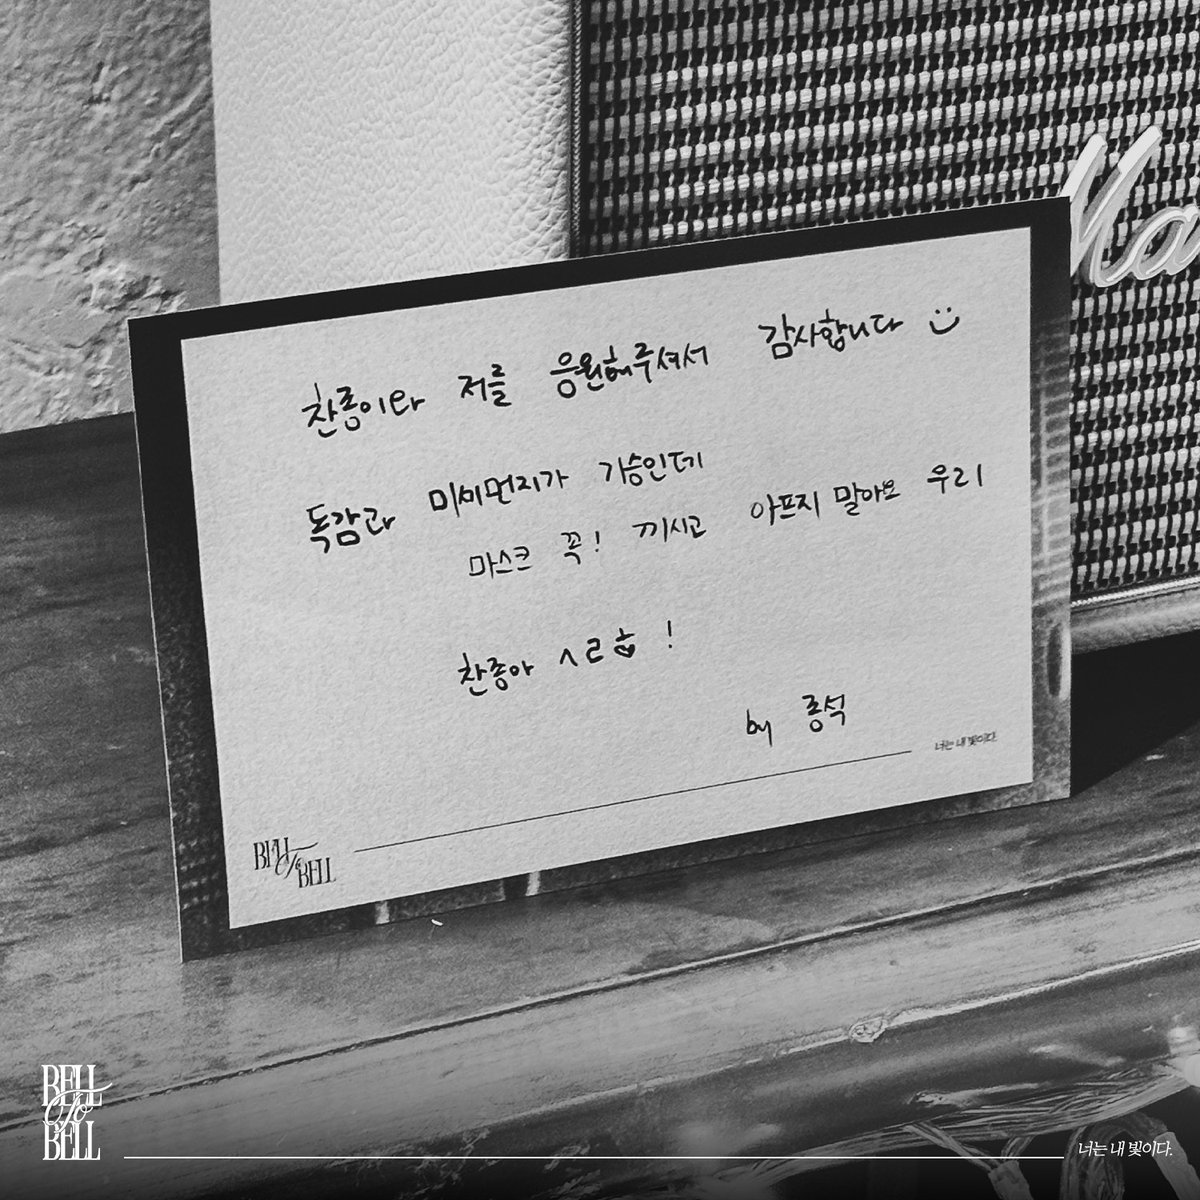 찬종이와 저를 응원해주셔서 감사합니다 :)
독감과 미세먼지가 기승인데
마스크 꼭! 끼시고 아프지 말아요 우리
찬종아 ㅅㄹㅎ !
by 종석
너는 내 빛이다.
BELL
To
BELL
Ma
BELL
To
BELL
너는 내 빛이다.